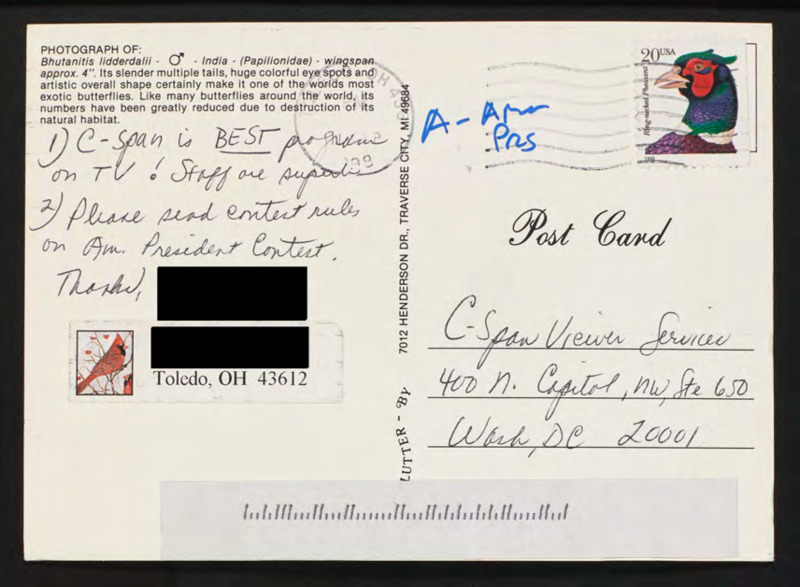 PHOTOGRAPH OF:
Bhutanitis lidderdalii - ♂ - India - (Papilionidae) - wingspan
approx. 4". Its slender multiple tails, huge colorful eye spots and
artistic overall shape certainly make it one of the worlds most
exotic butterflies. Like many butterflies around the world, its
numbers have been greatly reduced due to destruction of its
natural habitat.
1) C-Span is BEST programe
on TV! Staff are superb.
2) Please send contest rules
on Am. President Contest.
Thanks,
Toledo, OH 43612
LUTTER - By 7012 HENDERSON DR., TRAVERSE CITY, MI 49684
OH
A - Amer
Prs
20USA
Ring-necked Pheasant
Post Card
C-Span Viewer Services
400 N. Capitol, NW, Ste 650
Wash, DC 20001